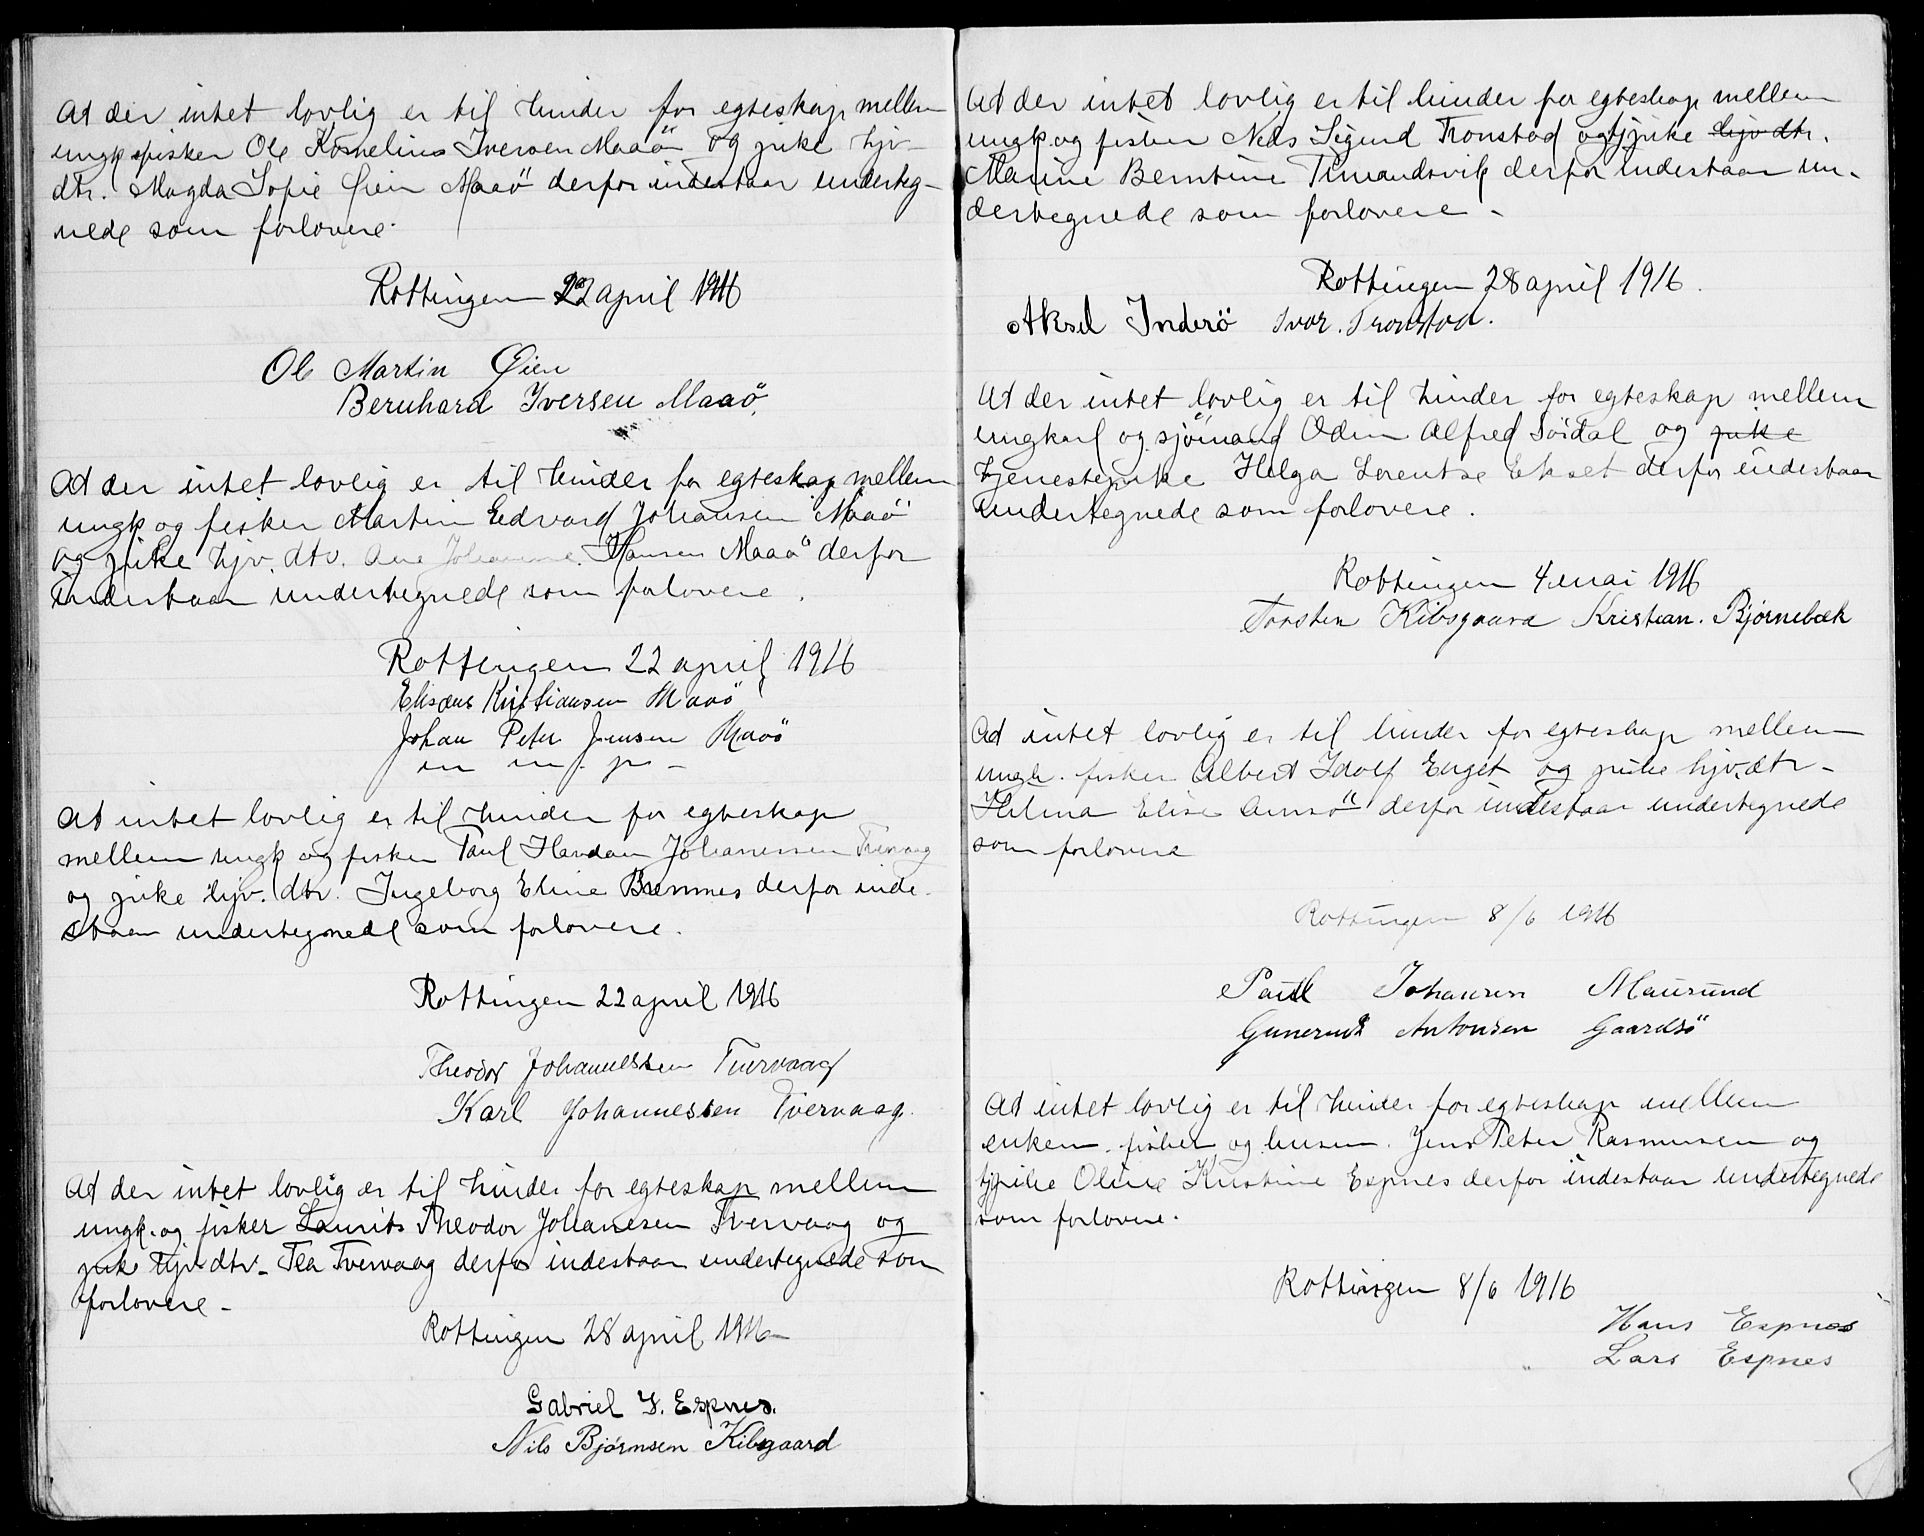 At der intet lovlig er til hinder for egteskap mellem
ungk og fisker Ole Kornelius Iversen Maaö og pike hjv.
dtr. Magda Sofie Øien Maaö derfor indestaar underteg-
nede som forlovere.
Rottingen 22 april 1916
Ole Martin Øien
Bernhard Iversen Maaö.
At der intet lovlig er til hinder for egteskap mellem
ungk og fisker Martin Edvard Johansen Maaö
og pike hjv. dtr. Ane Johanne Hansen Maaö derfor
indestaar undertegnede som forlovere.
Rottingen 22 april 1916
Elisæus Kristiansen Maaö
Johan Peter Jensen Maaö
m m. p -
At intet lovlig er til hinder for egteskap
mellem ungk og fisker Paul Hardan Johanessen Tvervaag
og pike hjv. dtr. Ingeborg Eline Bremnes derfor inde-
staar undertegnede som forlovere.
Rottingen 22 april 1916
Theodor Johannessen Tvervaag
Karl Johannessen Tvervaag.
At der intet lovlig er til hinder for egteskap mellem
ungk. og fisker Laurits Theodor Johanesen Tvervaag og
pike hjv. dtr. Tea Tvervaag derfor indestaar undertegnede som
forlovere -
Rottingen 28 april 1916
Gabriel I. Espnes.
Nils Bjørnsen Kibsgaard
At der intet lovlig er til hinder for egteskap mellem
ungk. og fisker Nils Sigurd Tronstad og tj.pike hjv dtr.
Marine Berntine Timandsvik derfor indestaar un-
dertegnede som forlovere -
Rottingen 28 april 1916.
Aksel Inderö Ivar. Tronstad.
At der intet lovlig er til hinder for egteskap mellem
ungkarl og sjömand Odin Alfred Söidal og pike
tjenestepike Helga Lorentse Ekset derfor indestaar
undertegnede som forlovere.
Rottingen 4 mai 1916
Torsten Kibsgaard Kristian. Bjørnebæk
At intet lovlig er til hinder for egteskap mellem
ungk. fisker Albert Idolf Enget og pike hjv. dtr.
Helma Elise Arnsö derfor indestaar undertegnede
som forlovere
Rottingen 8/6 1916
Paul Johansen Maursund
Gunerius Antonsen Gaardsö
At intet lovlig er til hinder for egteskap mellem
enkem. fisker og husm. Jens Peter Rasmussen og
tj.pike Oline Kristine Espnes derfor indestaar undertegnede
som forlovere.
Rottingen 8/6 1916
Hans Espnes
Lars Espnes